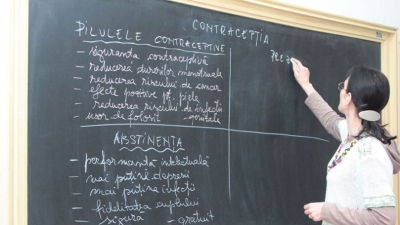 CONTRACEPȚIA
PILULELE CONTRACEPTIVE
- siguranta contraceptivă
- reducerea durerilor menstruale
- reducerea riscului de cancer
- efecte pozitive pt. piele
- reducerea riscului de infecții
- usor de folosit - genitale
ABSTINENȚA
- performanță intelectuală
- mai puține depresii
- mai puține infecții
- fidelitatea cuplului
- sigură - gratuit
PRE